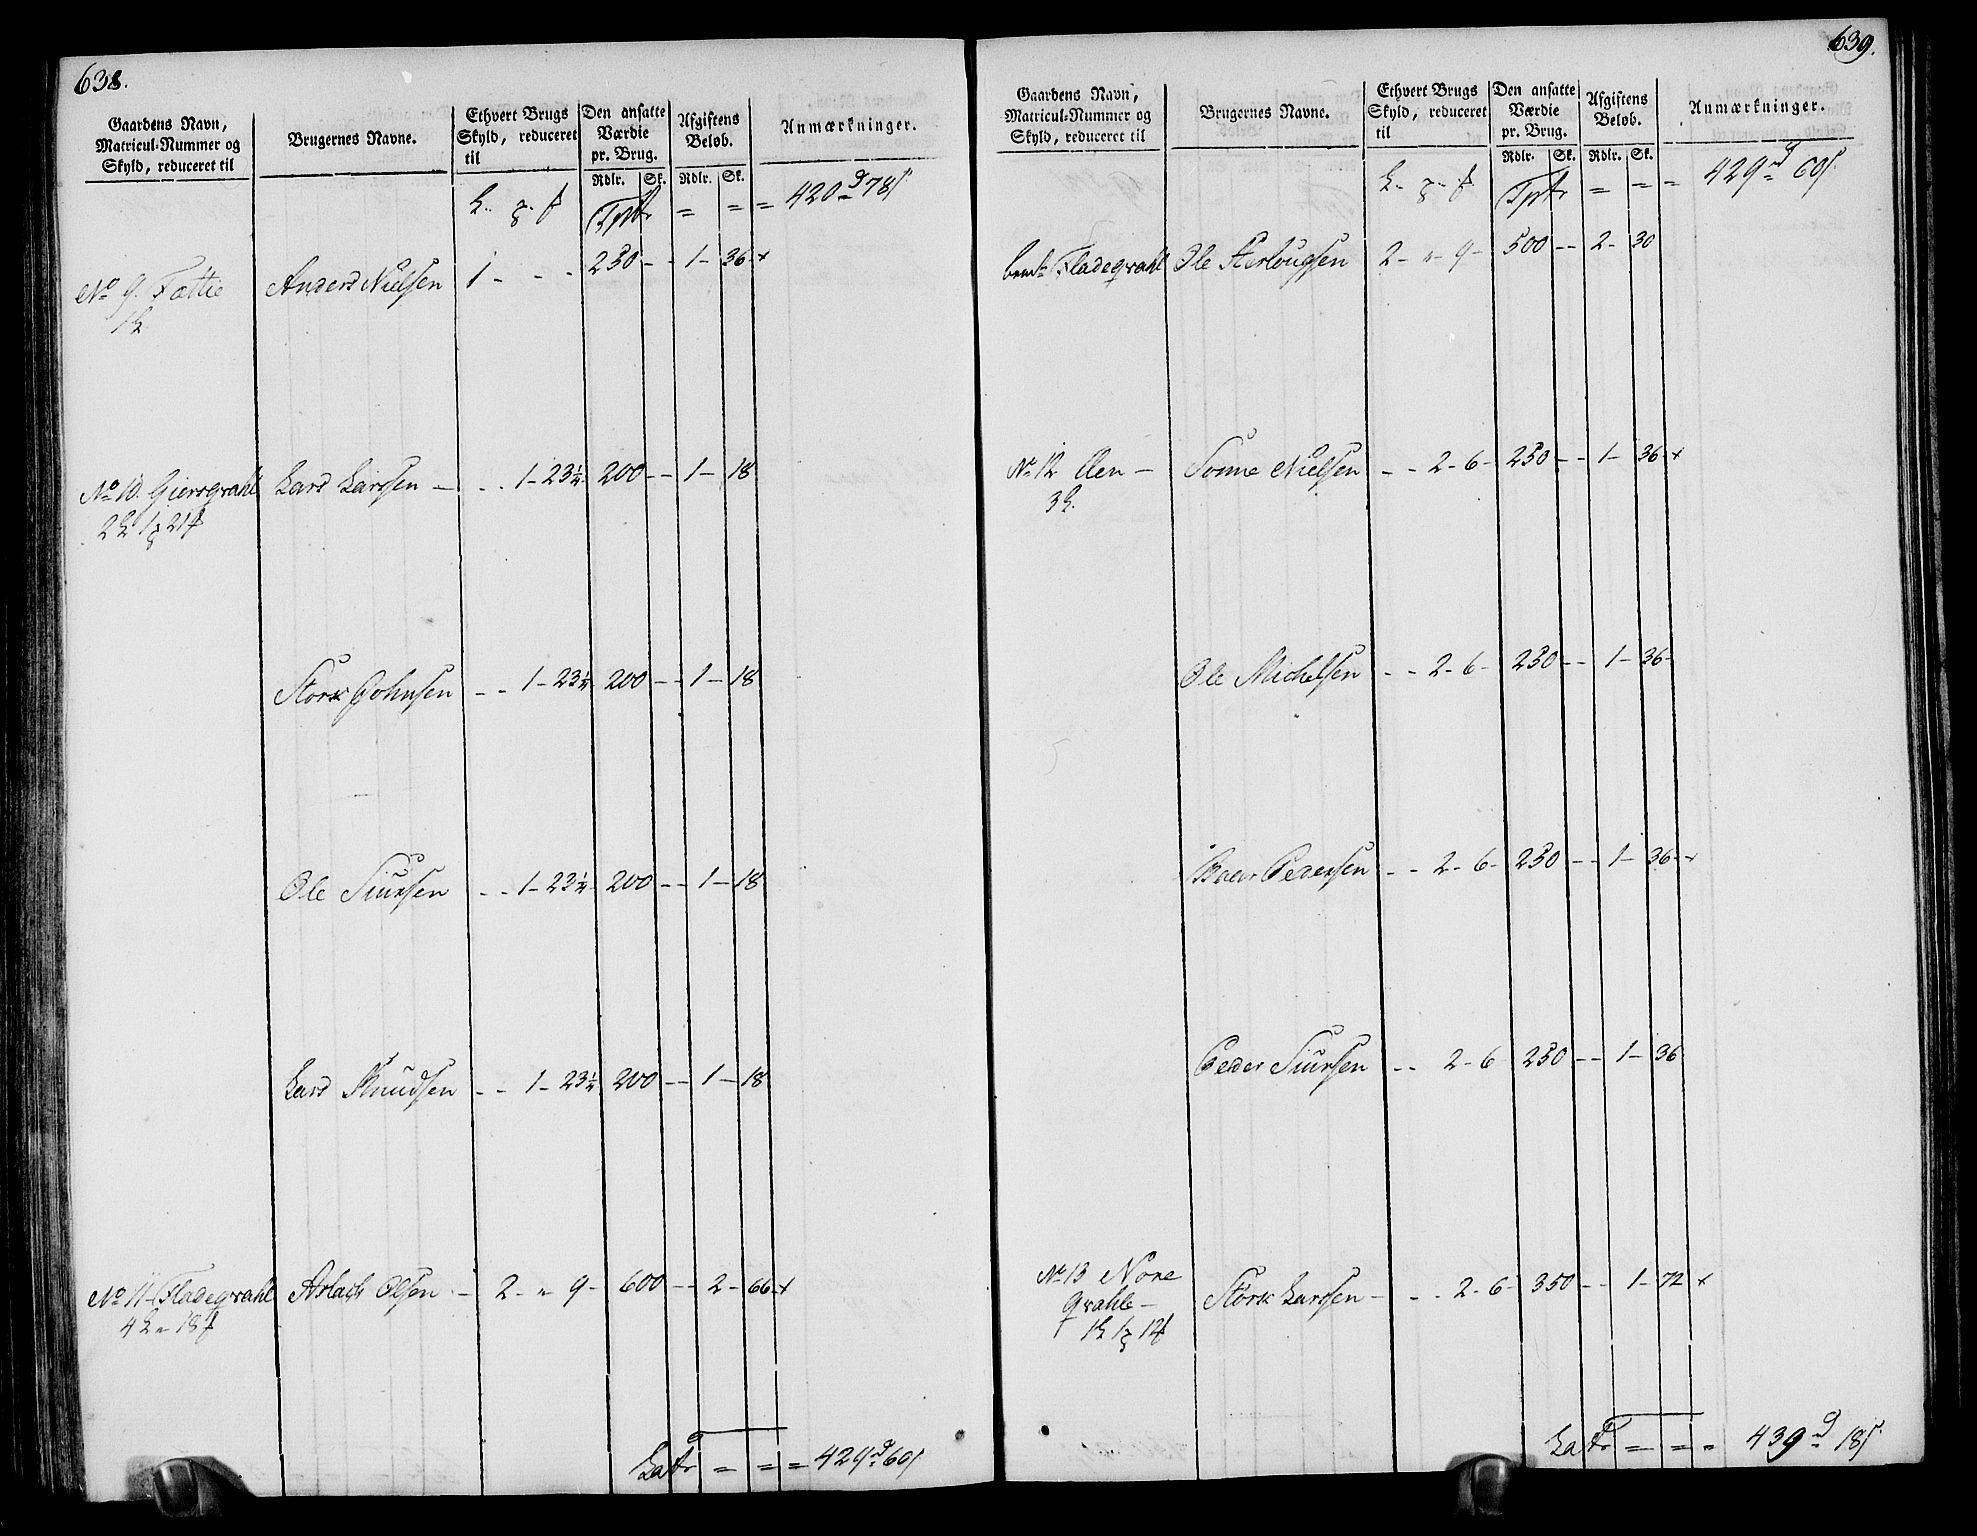 638.
Gaardens Navn,
Matricul-Nummer og
Skyld, reduceret til
Brugernes Navne.
Ethvert Brugs
Skyld, reduceret
til
Den ansatte
Værdie
pr. Brug.
Rdlr. Sk.
Afgiftens
Beløb.
Rdlr. Sk.
Anmærkninger.
Tptr = = = 420 78
No 9. Anders Nielsen 1 - - - 250 - - 1 - 36 +
No 10. Giersqvahl Lars Larssen - - - 1 - 23¼ 200 - - 1 - 18
Johnsen - - 1 - 23¼ 200 - - 1 - 18
Ole Siursen - - 1 - 23¼ 200 - - 1 - 18
Lars Knudsen - - 1 - 23¼ 200 - - 1 - 18
No 11 Fladeqvahl Aslach Olsen - 2 - " 9 - 600 - - 2 - 66 +
Latr = = = 429 60
639.
Gaardens Navn,
Matricul-Nummer og
Skyld, reduceret til
Brugernes Navne.
Ethvert Brugs
Skyld, reduceret
til
Den ansatte
Værdie
pr. Brug.
Rdlr. Sk.
Afgiftens
Beløb.
Rdlr. Sk.
Anmærkninger.
Tptr = = = 429 60
Fladeqvahl Ole 2 - " 9 - 500 - - 2 - 30
No 12 Aen - Sonne Nielsen - - 2 - 6 - 250 - - 1 - 36 +
Ole Michelsen - - 2 - 6 - 250 - - 1 - 36 -
Pedersen - - 2 - 6 - 250 - - 1 - 36 +
Peder Siursen - - 2 - 6 250 - - 1 - 36
No 13 Nore
Qvahle - Larssen - - - 2 - 6 - 350 - - 1 - 72 +
Latr = = = 439 18